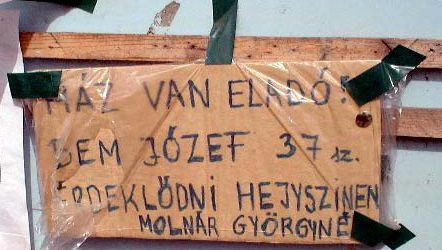 HÁZ VAN ELADÓ!
BEM JÓZEF 37 sz.
ÉRDEKLŐDNI HEJYSZINEN
MOLNÁR GYÖRGYNÉ